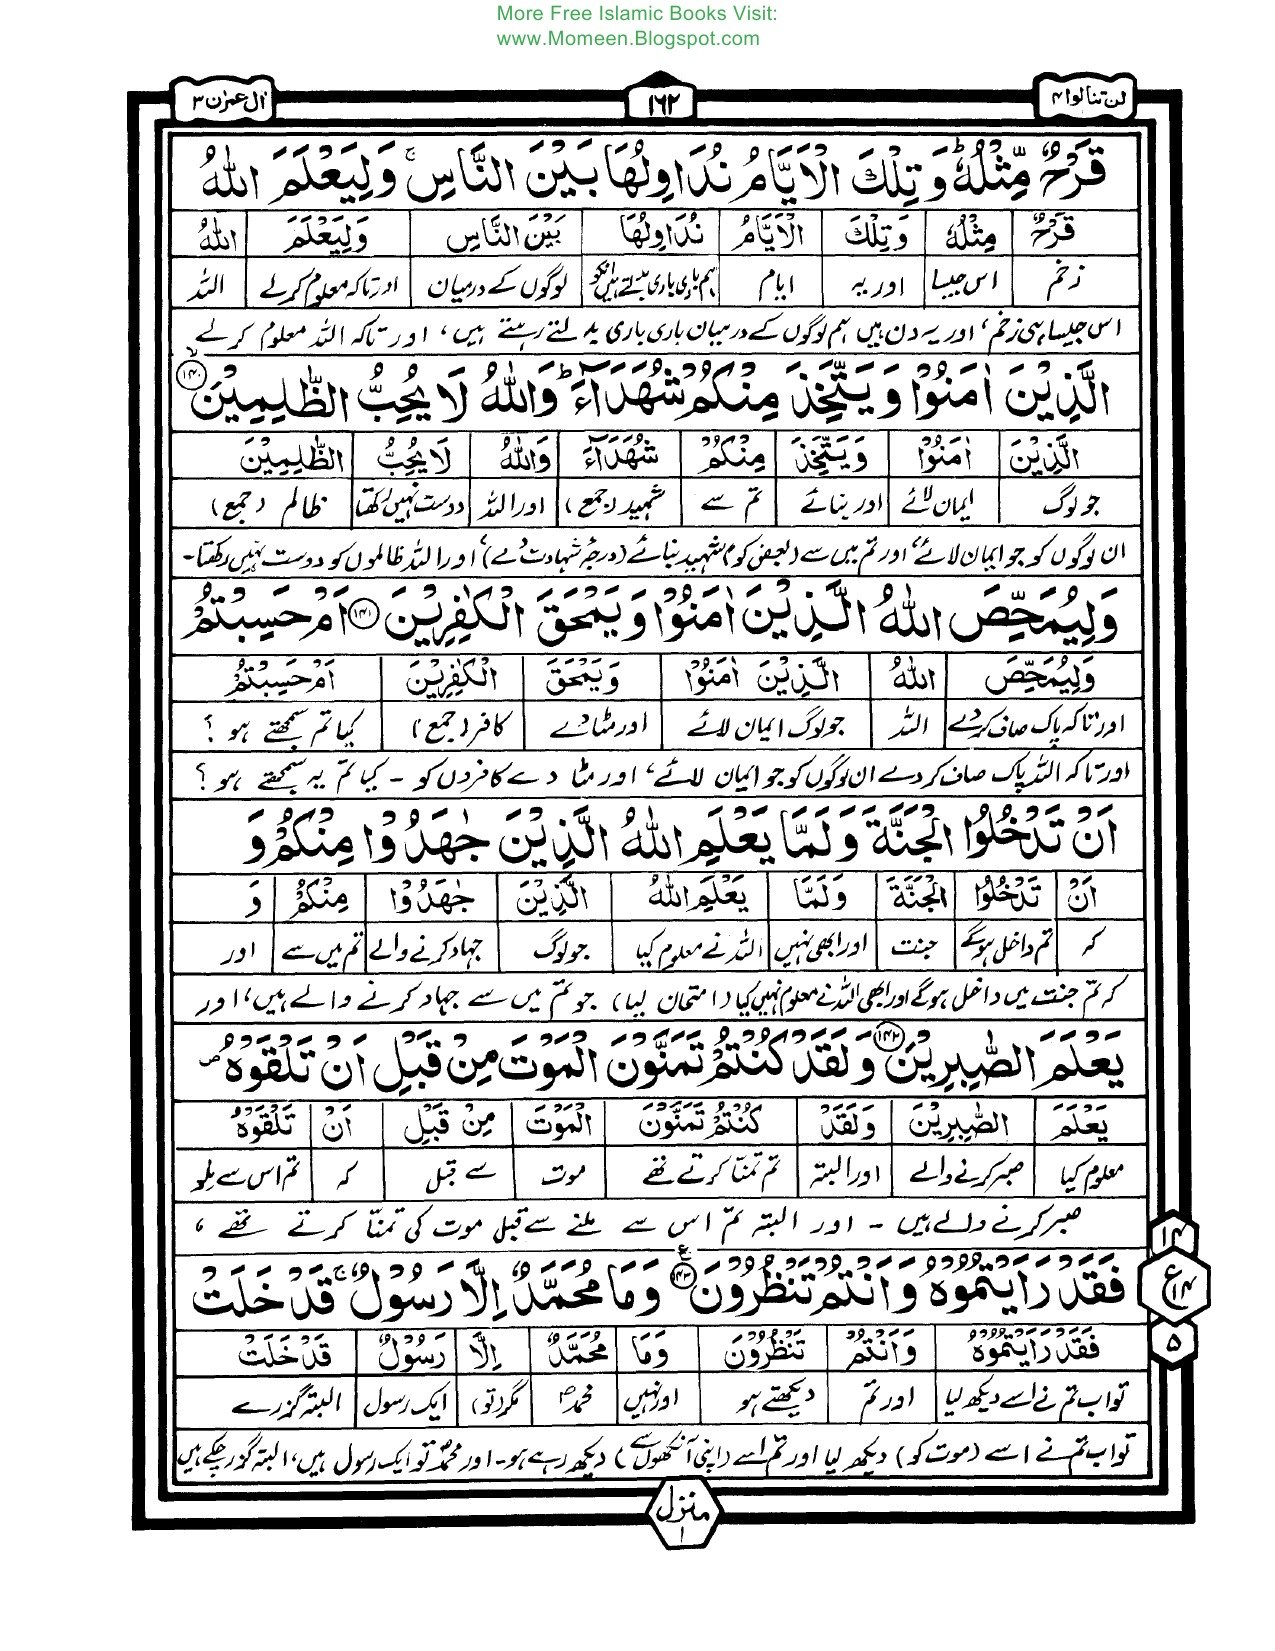 More Free Islamic Books Visit:
www.Momeen.Blogspot.com
لن تنالوا ۴ ۱۶۲ اٰل عمرٰن ۳
قَرْحٌ مِّثْلُهٗ ؕ وَ تِلْكَ الْاَیَّامُ نُدَاوِلُهَا بَیْنَ النَّاسِ ۚ وَ لِیَعْلَمَ اللّٰهُ
قَرْحٌ مِثْلُهٗ وَ تِلْكَ الْاَیَّامُ نُدَاوِلُهَا بَیْنَ النَّاسِ وَلِیَعْلَمَ اللّٰهُ
زخم اس جیسا اور یہ ایام ہم باری باری بدلتے ہیں انکو لوگوں کے درمیان اور تاکہ معلوم کرلے اللہ
اس جیسا ہی زخم، اور یہ دن ہیں ہم لوگوں کے درمیان باری باری بدلتے رہتے ہیں، اور تاکہ اللہ معلوم کرلے
الَّذِیْنَ اٰمَنُوْا وَ یَتَّخِذَ مِنْكُمْ شُهَدَآءَ ؕ وَاللّٰهُ لَا یُحِبُّ الظّٰلِمِیْنَ ۱۴۰
الَّذِیْنَ اٰمَنُوْا وَ یَتَّخِذَ مِنْكُمْ شُهَدَآءَ وَاللّٰهُ لَا یُحِبُّ الظّٰلِمِیْنَ
جو لوگ ایمان لائے اور بنائے تم سے شہید (جمع) اور اللہ دوست نہیں رکھتا ظالم (جمع)
ان لوگوں کو جو ایمان لائے، اور تم میں سے (بعض کو) شہید بنائے (درجۂ شہادت دے)، اور اللہ ظالموں کو دوست نہیں رکھتا۔
وَ لِیُمَحِّصَ اللّٰهُ الَّذِیْنَ اٰمَنُوْا وَ یَمْحَقَ الْكٰفِرِیْنَ ۱۴۱ اَمْ حَسِبْتُمْ
وَ لِیُمَحِّصَ اللّٰهُ الَّذِیْنَ اٰمَنُوْا وَ یَمْحَقَ الْكٰفِرِیْنَ اَمْ حَسِبْتُمْ
اور تاکہ پاک صاف کردے اللہ جو لوگ ایمان لائے اور مٹادے کافر (جمع) کیا تم سمجھتے ہو ؟
اور تاکہ اللہ پاک صاف کردے ان لوگوں کو جو ایمان لائے، اور مٹا دے کافروں کو ۔ کیا تم یہ سمجھتے ہو ؟
اَنْ تَدْخُلُوا الْجَنَّةَ وَ لَمَّا یَعْلَمِ اللّٰهُ الَّذِیْنَ جٰهَدُوْا مِنْكُمْ وَ
اَنْ تَدْخُلُوا الْجَنَّةَ وَلَمَّا یَعْلَمِ اللّٰهُ الَّذِیْنَ جٰهَدُوْا مِنْكُمْ وَ
کہ تم داخل ہوگے جنت اور ابھی نہیں اللہ نے معلوم کیا جو لوگ جہاد کرنے والے تم میں سے اور
کہ تم جنت میں داخل ہوگے اور ابھی اللہ نے معلوم نہیں کیا (امتحان لیا) جو تم میں سے جہاد کرنے والے ہیں، اور
یَعْلَمَ الصّٰبِرِیْنَ ۱۴۲ وَ لَقَدْ كُنْتُمْ تَمَنَّوْنَ الْمَوْتَ مِنْ قَبْلِ اَنْ تَلْقَوْهُ ۪
یَعْلَمَ الصّٰبِرِیْنَ وَ لَقَدْ كُنْتُمْ تَمَنَّوْنَ الْمَوْتَ مِنْ قَبْلِ اَنْ تَلْقَوْهُ
معلوم کیا صبر کرنے والے اور البتہ تم تمنّا کرتے تھے موت سے قبل کہ تم اس سے ملو
صبر کرنے والے ہیں ۔ اور البتہ تم اس سے ملنے سے قبل موت کی تمنّا کرتے تھے،
فَقَدْ رَاَیْتُمُوْهُ وَ اَنْتُمْ تَنْظُرُوْنَ ۱۴۳ ع وَ مَا مُحَمَّدٌ اِلَّا رَسُوْلٌ ۚ قَدْ خَلَتْ
۱۴ ع ۱۴ ۵
فَقَدْ رَاَیْتُمُوْهُ وَ اَنْتُمْ تَنْظُرُوْنَ وَ مَا مُحَمَّدٌ اِلَّا رَسُوْلٌ قَدْ خَلَتْ
تو اب تم نے اسے دیکھ لیا اور تم دیکھتے ہو اور نہیں محمدؐ مگر (تو) ایک رسول البتہ گزرے
تو اب تم نے اسے (موت کو) دیکھ لیا اور تم اسے (اپنی آنکھوں سے) دیکھ رہے ہو۔ اور محمدؐ تو ایک رسول ہیں، البتہ گزر چکے ہیں
منزل ۱